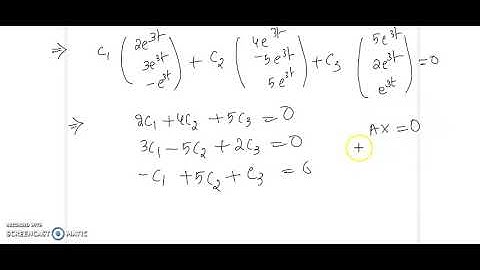 ⇒ C₁ (2e³ᵗ 3e³ᵗ -e³ᵗ) + C₂ (4e³ᵗ -5e³ᵗ 5e³ᵗ) + C₃ (5e³ᵗ 2e³ᵗ e³ᵗ) = 0
⇒ 2C₁ + 4C₂ + 5C₃ = 0
3C₁ - 5C₂ + 2C₃ = 0
AX = 0
-C₁ + 5C₂ + C₃ = 0
RECORDED WITH
SCREENCAST-O-MATIC